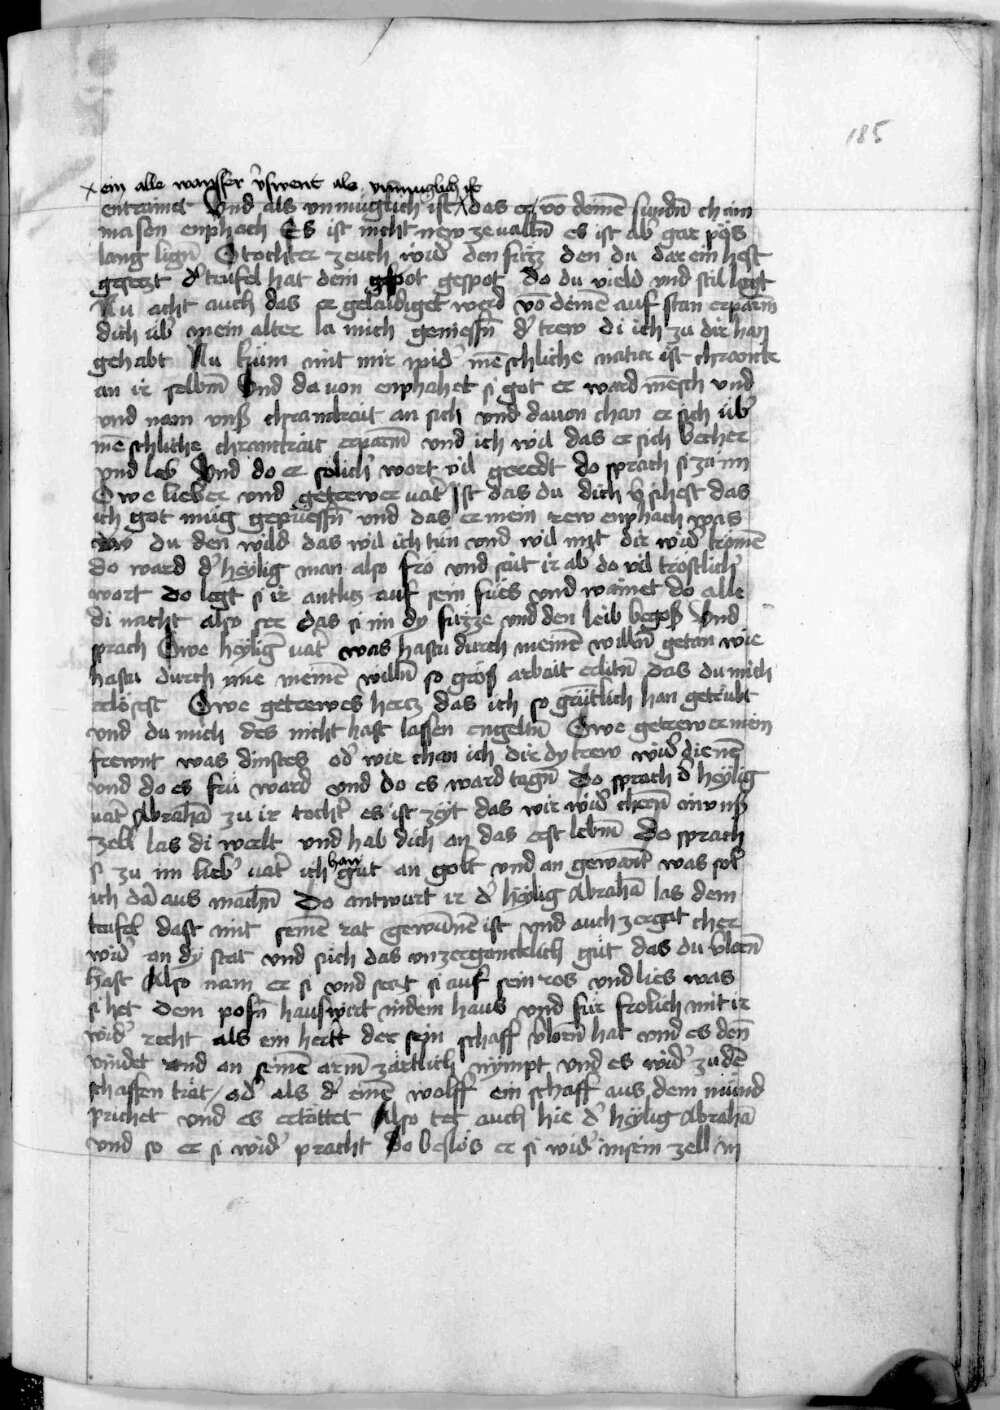 185
x ein alle wasser v̓swent als vnmuglich ist
entrainet Vnd als vnmuglich ist das er vō deinē sundn̄ chain
masen enphach Es ist nicht new ze valln̄ es ist ab̓ gar pös
lang lign̄ O tochter zeuch wid̓ den fuzz den du dar ein hest
gesetzt d̓ teufel hat dein gespot do du vield vnd stil lagt
Nu acht auch das er gelaidiget werd vō deinē auf stan erparm̄
dich üb̓ mein alter la mich geniessn̄ d̓ trew di ich zu dir han
gehabt Nu kum mit mir wid̓ mēschliche natur ist chranck
an ir selbm̄ Vnd da von enphahet si got er ward mēsch vnd
vnd nam vnß chranchait an sich vnd dauon chan er sich üb̓
mēschliche chranchait erparm̄ vnd ich wil das er sich becher
vnd leb Vnd do er sölich̓ wort vil geredt do sprach si zu im
Owe lieber vnd getrewer vat̓ Ist das du dich v̓sihest das
ich got müg gepuessn̄ vnd das er mein rew enphach was
du den wild das wil ich tun vnd wil mit dir wid̓ kömē
do ward d̓ heylig man also fro vnd sait ir ab̓ do vil trostlich̓
wort do legt si ir antlitz auf sein fües vnd wainet do alle
di nacht also ser das si im dy füzze vnd den leib begoß Vnd
sprach Owe heylig̓ vat̓ was hastu durch meinē willn̄ getan wie
hastu durch meinē willn̄ so groß arbait erlitn̄ das du mich
erlösest Owe getrewes hertz das ich so grütlich han getrübt
vnd du mich des nicht hast lassen engeltn̄ Owe getrewer mein
frewnt was dinstes od̓ wie chan ich dir dy trew wid̓ dienē
vnd do es frü ward vnd do es ward tagn̄ Do sprach d̓ heylig
vat̓ Abrahā zu ir tocht̓ es ist zeyt das wir wid̓ chern̄ in vnß
zell las di werlt vnd hab dich an das erst lebm̄ Do sprach
si zu im lieb̓ vat̓ ich han gut an golt vnd an gewant was sol
ich dar aus machn̄ Do antwurt ir d̓ heylig Abrahā las dem
teufel dast mit seinē rat gewunnē ist vnd auch zergat cher
wid̓ an dy stat vnd sich das vnzerganckleich güt das du v̓lorn̄
hast Also nam er si vnd setzt si auf sein ros vnd lies was
si het dem posn̄ hauswirt in dem haus vnd für frolich mit ir
wid̓ recht als ein hertt der sein schaff v̓lorn̄ hat vnd es den̄
vindet vnd an seinē arm̄ zärtlich nÿmpt vnd es wid̓ zu dē
schaffen trät / od̓ als d̓ einē wolff ein schaff aus dem mund
prichet vnd es ertöttet Also tet auch hie d̓ heylig Abrahā
vnd so er si wid̓ pracht do beslos er si wid̓ in sein zell in